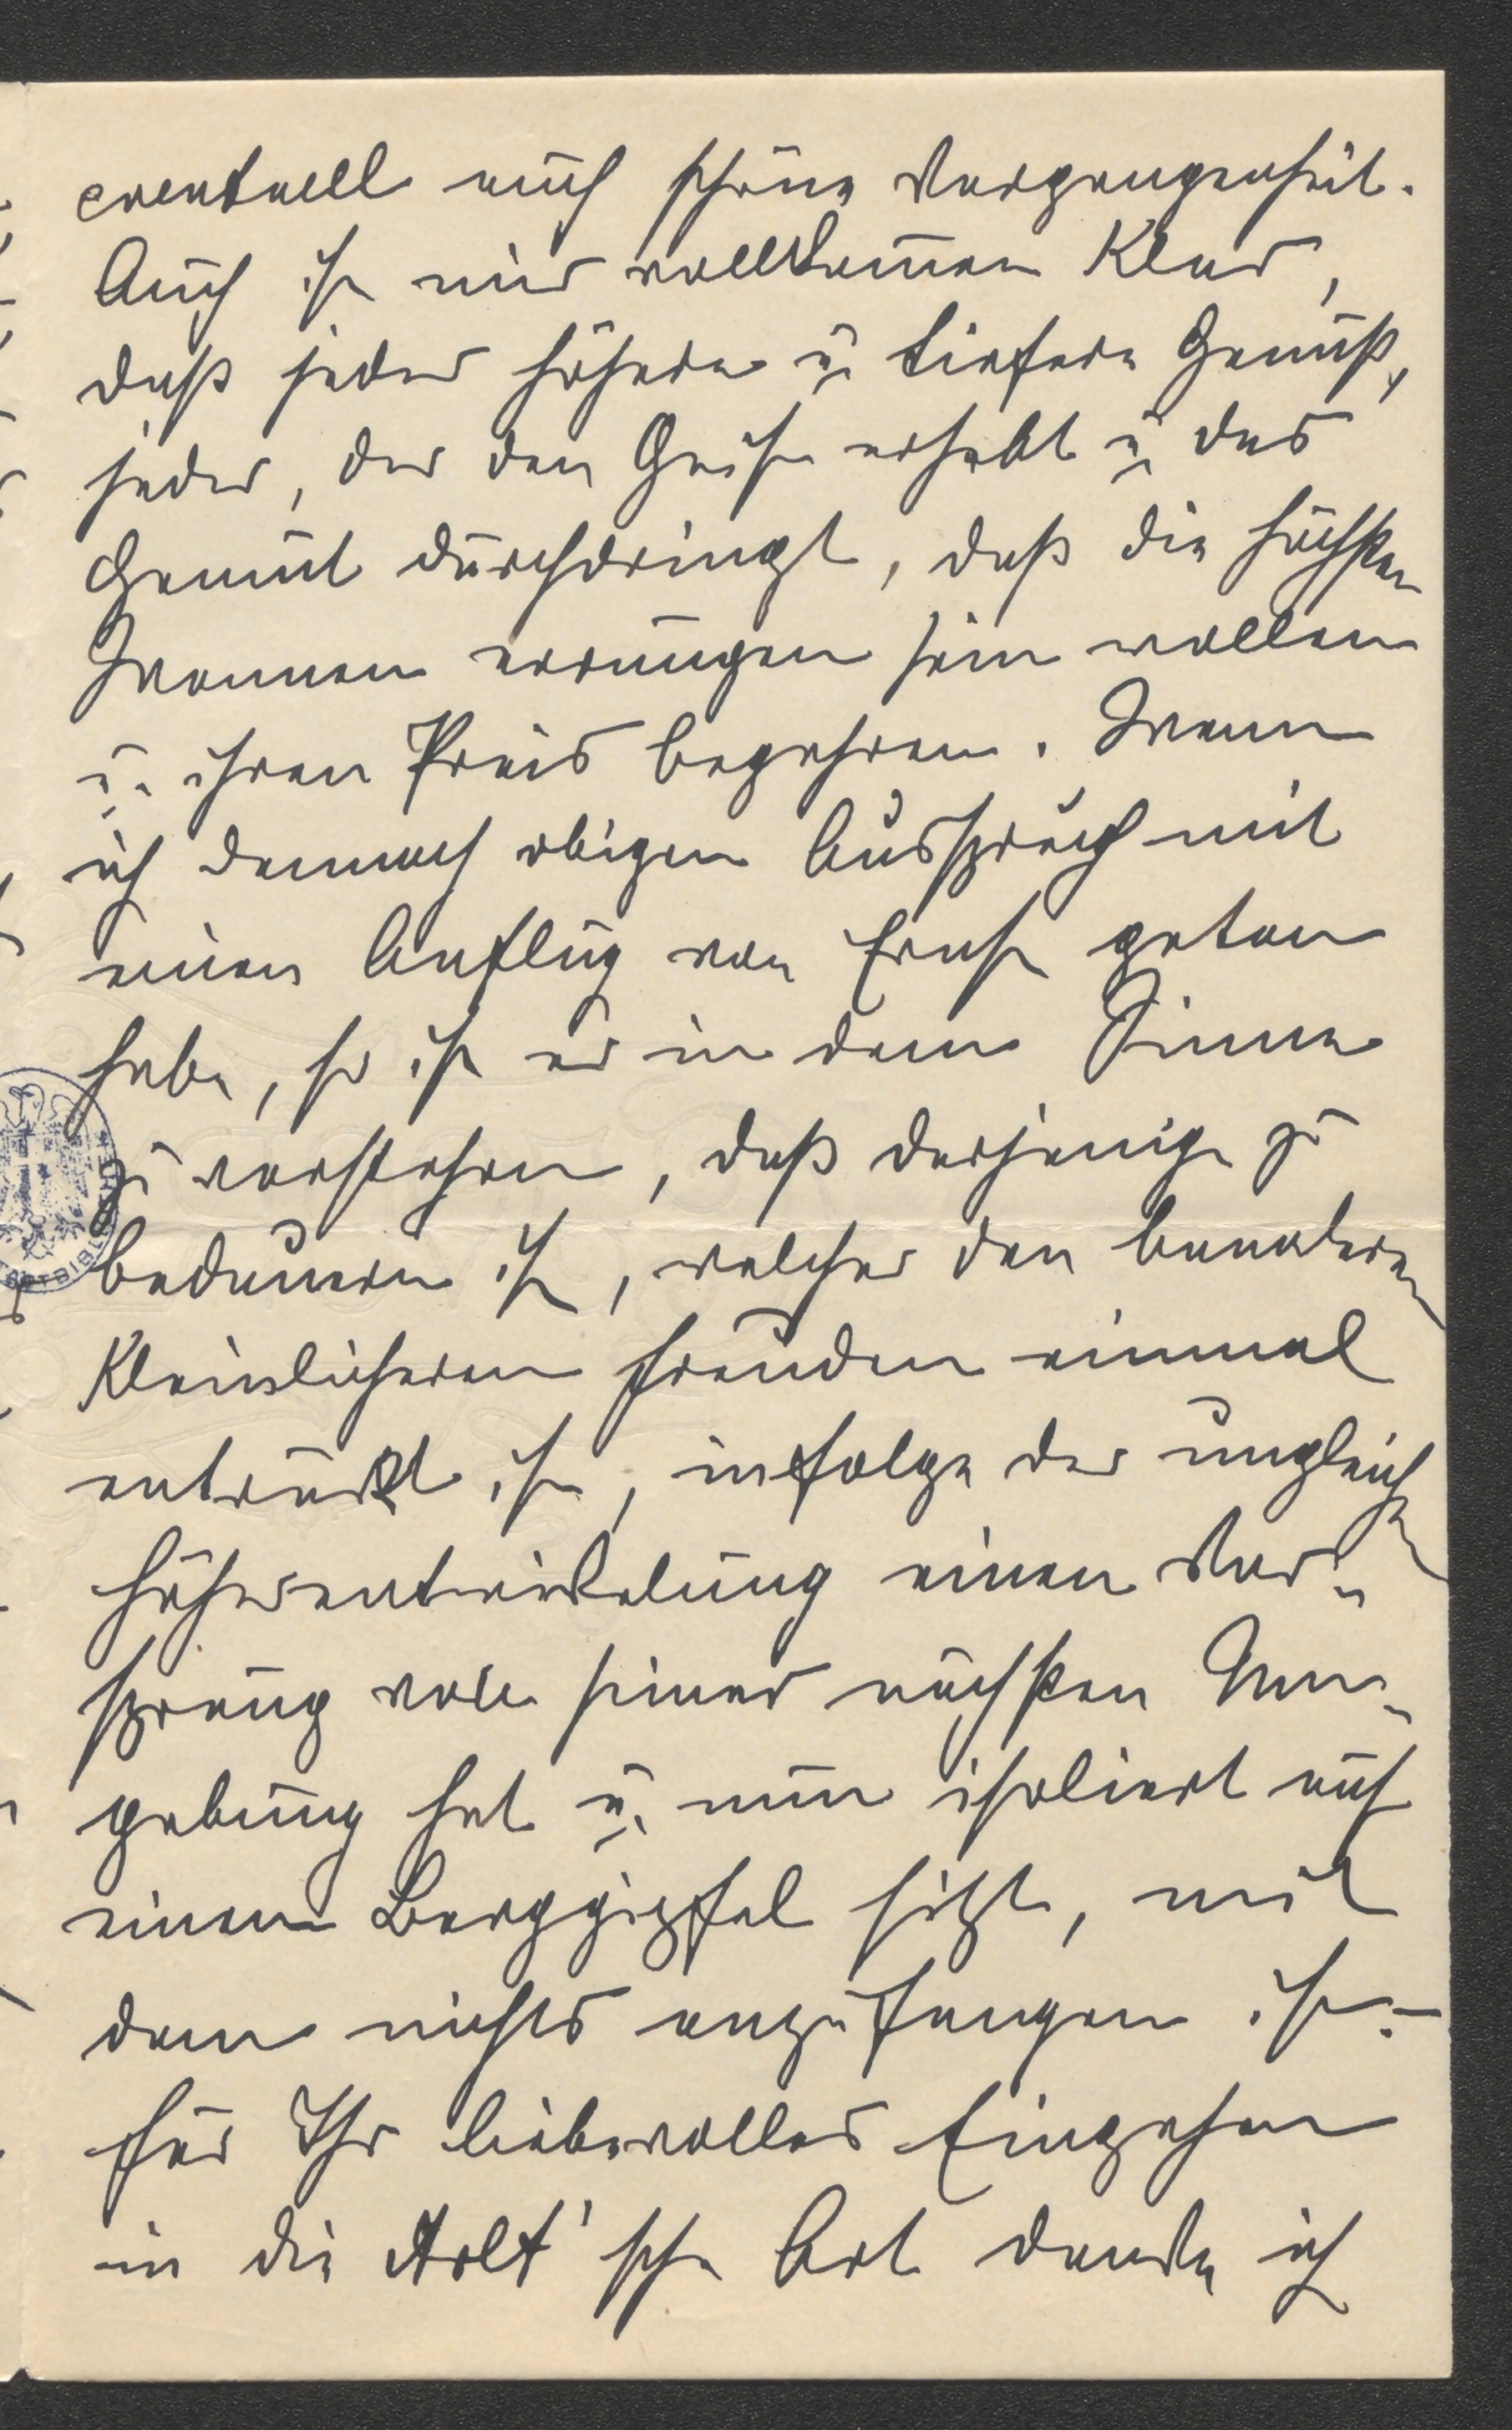 eventuell auch schöne Vergangenheit.
Auch ist mir vollkommen klar,
daß jeder höhere u. tiefere Genuß,
jeder, der den Geist erhebt u. das
Gemüt durchdringt, daß die höchsten
Wonnen errungen sein wollen
u. ihren Preis begehren. Wenn
ich dennoch obigen Ausspruch mit
einen Anflug von Ernst getan
habe, so ist er in dem Sinne
zu verstehen, daß derjenige zu
bedauern ist, welcher den banaleren
kleinlicheren Freuden einmal
entrückt ist, infolge der ungleichen
Höherentwickelung einen Vor-
sprung von seiner nächsten Um-
gebung hat u. nun isoliert auf
einem Berggipfel sitzt, mit
dem nichts anzufangen ist. –
Für Ihr liebevolles Eingehen
in die Arlt'sche Art danke ich